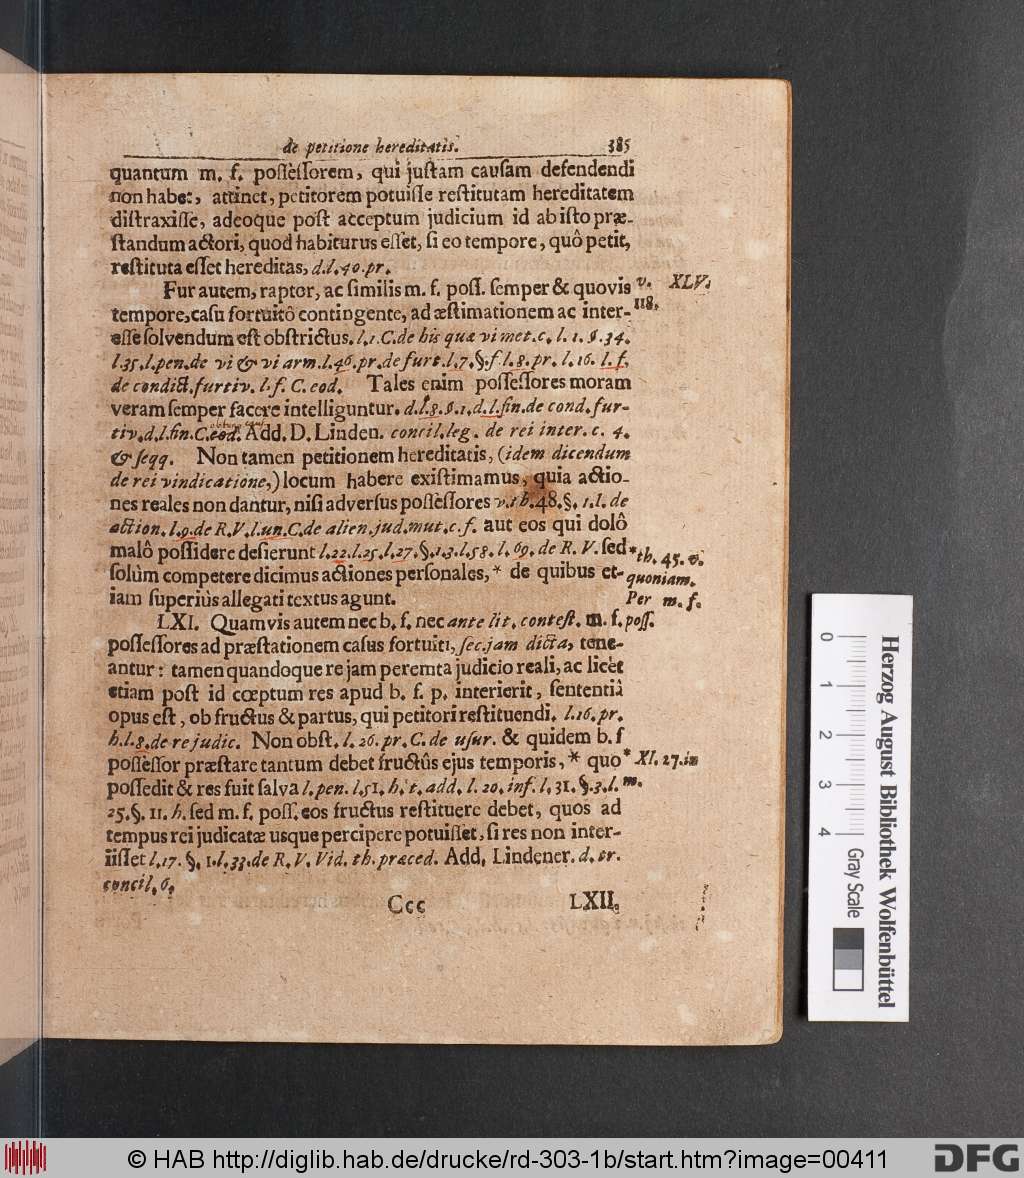 de petitione hereditatis. 385
quantum m. f. possessorem, qui justam causam defendendi
non habet, attinet, petitorem potuisse restitutam hereditatem
distraxisse, adeoque post acceptum judicium id ab isto præ-
standum actori, quod habiturus esset, si eo tempore, quô petit,
restituta esset hereditas, d.l.40.pr.
Fur autem, raptor, ac similis m. f. poss. semper & quovis
v. XLV.
118.
tempore, casu fortuitô contingente, ad æstimationem ac inter-
esse solvendum est obstrictus. l.1.C.de his quæ vi met.c. l. 1. §.34.
l.35.l.pen.de vi & vi arm.l.46.pr.de furt.l.7.§.f.l.8.pr. l.16. l.f.
de condict.furtiv. l.f. C.eod. Tales enim possessores moram
veram semper facere intelliguntur. d.l.8.§.1.d.l.fin.de cond.fur-
tiv.d.l.fin.C.eod. Add. D. Linden. concil.leg. de rei inter. c. 4.
& seqq. Non tamen petitionem hereditatis, (idem dicendum
de rei vindicatione,) locum habere existimamus, quia actio-
nes reales non dantur, nisi adversus possessores v.th.48.§.1.I.de
action.l.9.de R.V.l.un.C.de alien.jud.mut.c.f. aut eos qui dolô
malô possidere desierunt l.22.l.25.l.27.§.1.3.l.58.l.69.de R.V. sed
solùm competere dicimus actiones personales,* de quibus et-
iam superiùs allegati textus agunt.
*th. 45. v.
quoniam.
Per m. f.
poss.
LXI. Quamvis autem nec b. f. nec ante lit. contest. m. f.
possessores ad præstationem casus fortuiti, sec.jam dicta, tene-
antur: tamen quandoque re jam peremta judicio reali, ac licèt
etiam post id cœptum res apud b. f. p. interierit, sententiâ
opus est, ob fructus & partus, qui petitori restituendi. l.16.pr.
h.l.8.de re judic. Non obst. l. 26. pr. C. de usur. & quidem b. f
possessor præstare tantum debet fructûs ejus temporis,* quo
* XI. 27. in
m.
possedit & res fuit salva l.pen. l.51. h. t. add. l. 20. inf. l. 31. §.3.l.
25.§. 11. h. sed m. f. poss. eos fructus restituere debet, quos ad
tempus rei judicatæ usque percipere potuisset, si res non inter-
iisset l.17. §. 1.l.33.de R. V. Vid. th. præced. Add. Lindener. d. tr.
concil. 6.
Ccc LXII.
Herzog August Bibliothek Wolfenbüttel
0 1 2 3 4
Gray Scale
© HAB http://diglib.hab.de/drucke/rd-303-1b/start.htm?image=00411
DFG